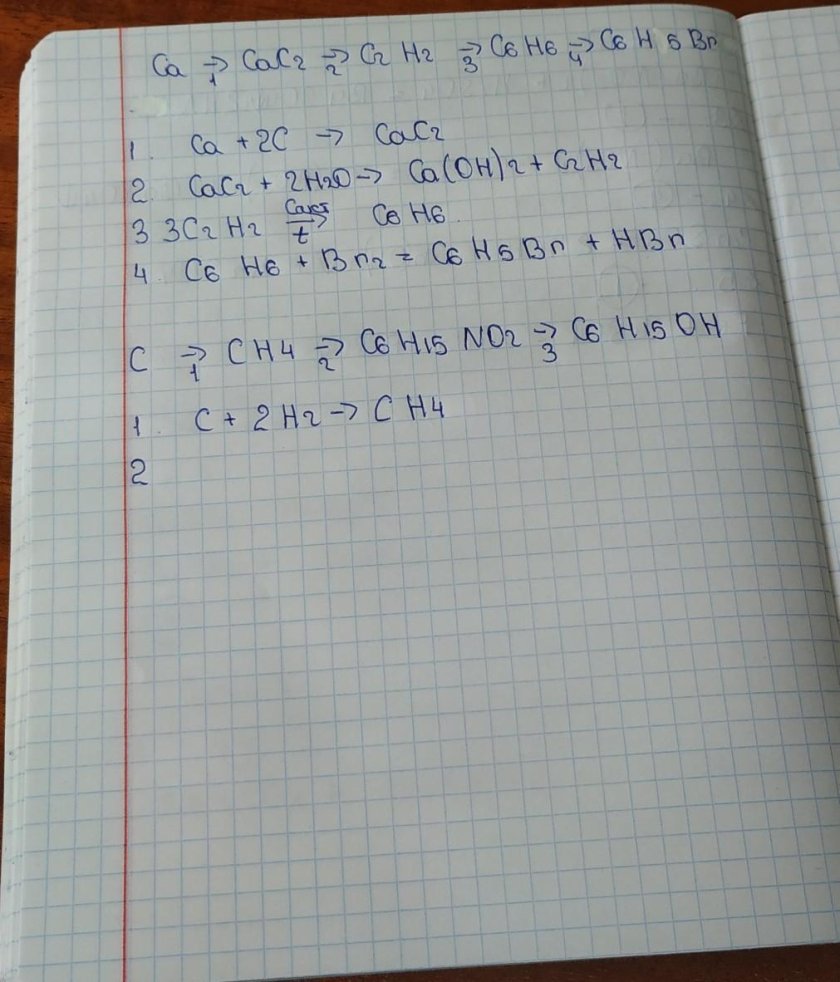 Ca →1 CaC2 →2 C2H2 →3 C6H6 →4 C6H5Br
1. Ca + 2C → CaC2
2. CaC2 + 2H2O → Ca(OH)2 + C2H2
3 3C2H2 Cакт →t C6H6.
4. C6H6 + Br2 = C6H5Br + HBr
C →1 CH4 →2 C6H15NO2 →3 C6H15OH
1. C + 2H2 → CH4
2